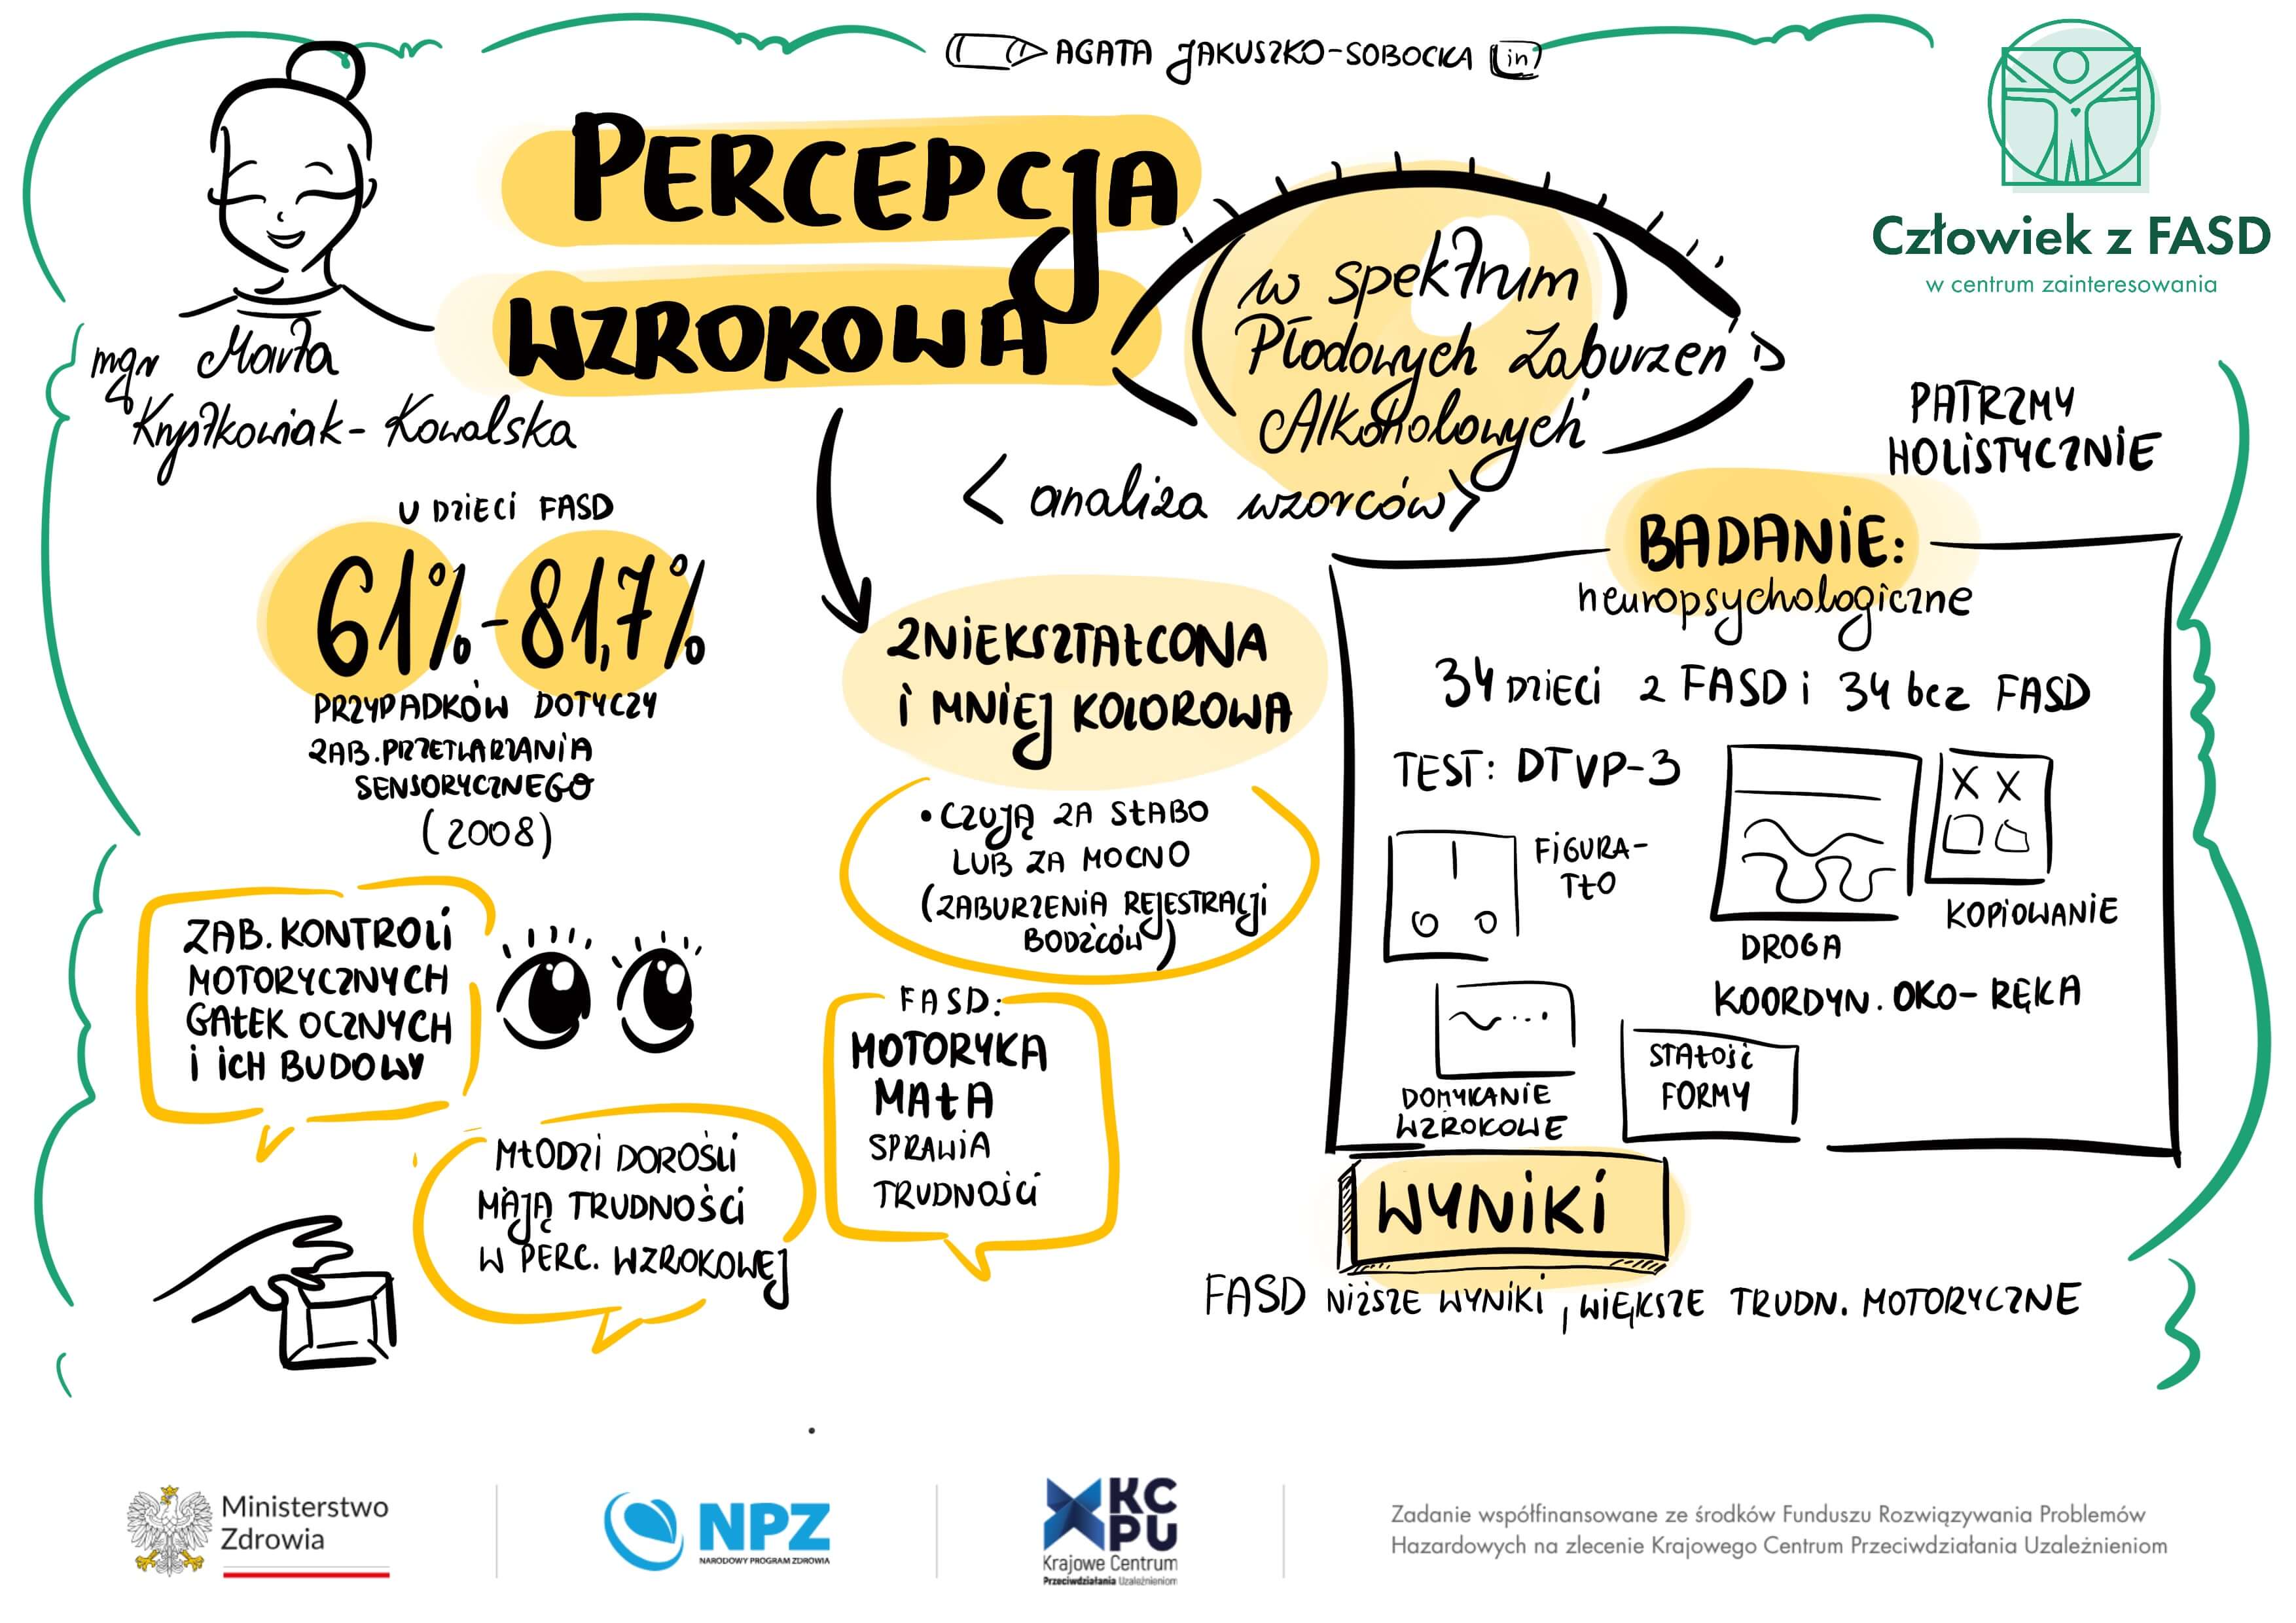 AGATA JAKUSZKO-SOBOCKA in
PERCEPCJA
WZROKOWA
w spektrum
Płodowych Zaburzeń
Alkoholowych
< analiza wzorców>
Człowiek z FASD
w centrum zainteresowania
mgr Marta
Kryśkowiak-Kowalska
U DZIECI FASD
61%-81,7%
PRZYPADKÓW DOTYCZY
ZAB. PRZETWARZANIA
SENSORYCZNEGO
(2008)
ZAB. KONTROLI
MOTORYCZNYCH
GAŁEK OCZNYCH
I ICH BUDOWY
MŁODZI DOROŚLI
MAJĄ TRUDNOŚCI
W PERC. WZROKOWEJ
ZNIEKSZTAŁCONA
I MNIEJ KOLOROWA
• CZUJĄ ZA SŁABO
LUB ZA MOCNO
(ZABURZENIA REJESTRACJI
BODŹCÓW)
FASD:
MOTORYKA
MAŁA
SPRAWIA
TRUDNOŚCI
PATRZMY
HOLISTYCZNIE
BADANIE:
neuropsychologiczne
34 DZIECI Z FASD i 34 bez FASD
TEST: DTVP-3
FIGURA-
TŁO
DROGA
KOPIOWANIE
KOORDYN. OKO-RĘKA
DOMYKANIE
WZROKOWE
STAŁOŚĆ
FORMY
WYNIKI
FASD NIŻSZE WYNIKI, WIĘKSZE TRUDN. MOTORYCZNE
Ministerstwo
Zdrowia
NPZ
NARODOWY PROGRAM ZDROWIA
KC
PU
Krajowe Centrum
Przeciwdziałania Uzależnieniom
Zadanie współfinansowane ze środków Funduszu Rozwiązywania Problemów
Hazardowych na zlecenie Krajowego Centrum Przeciwdziałania Uzależnieniom